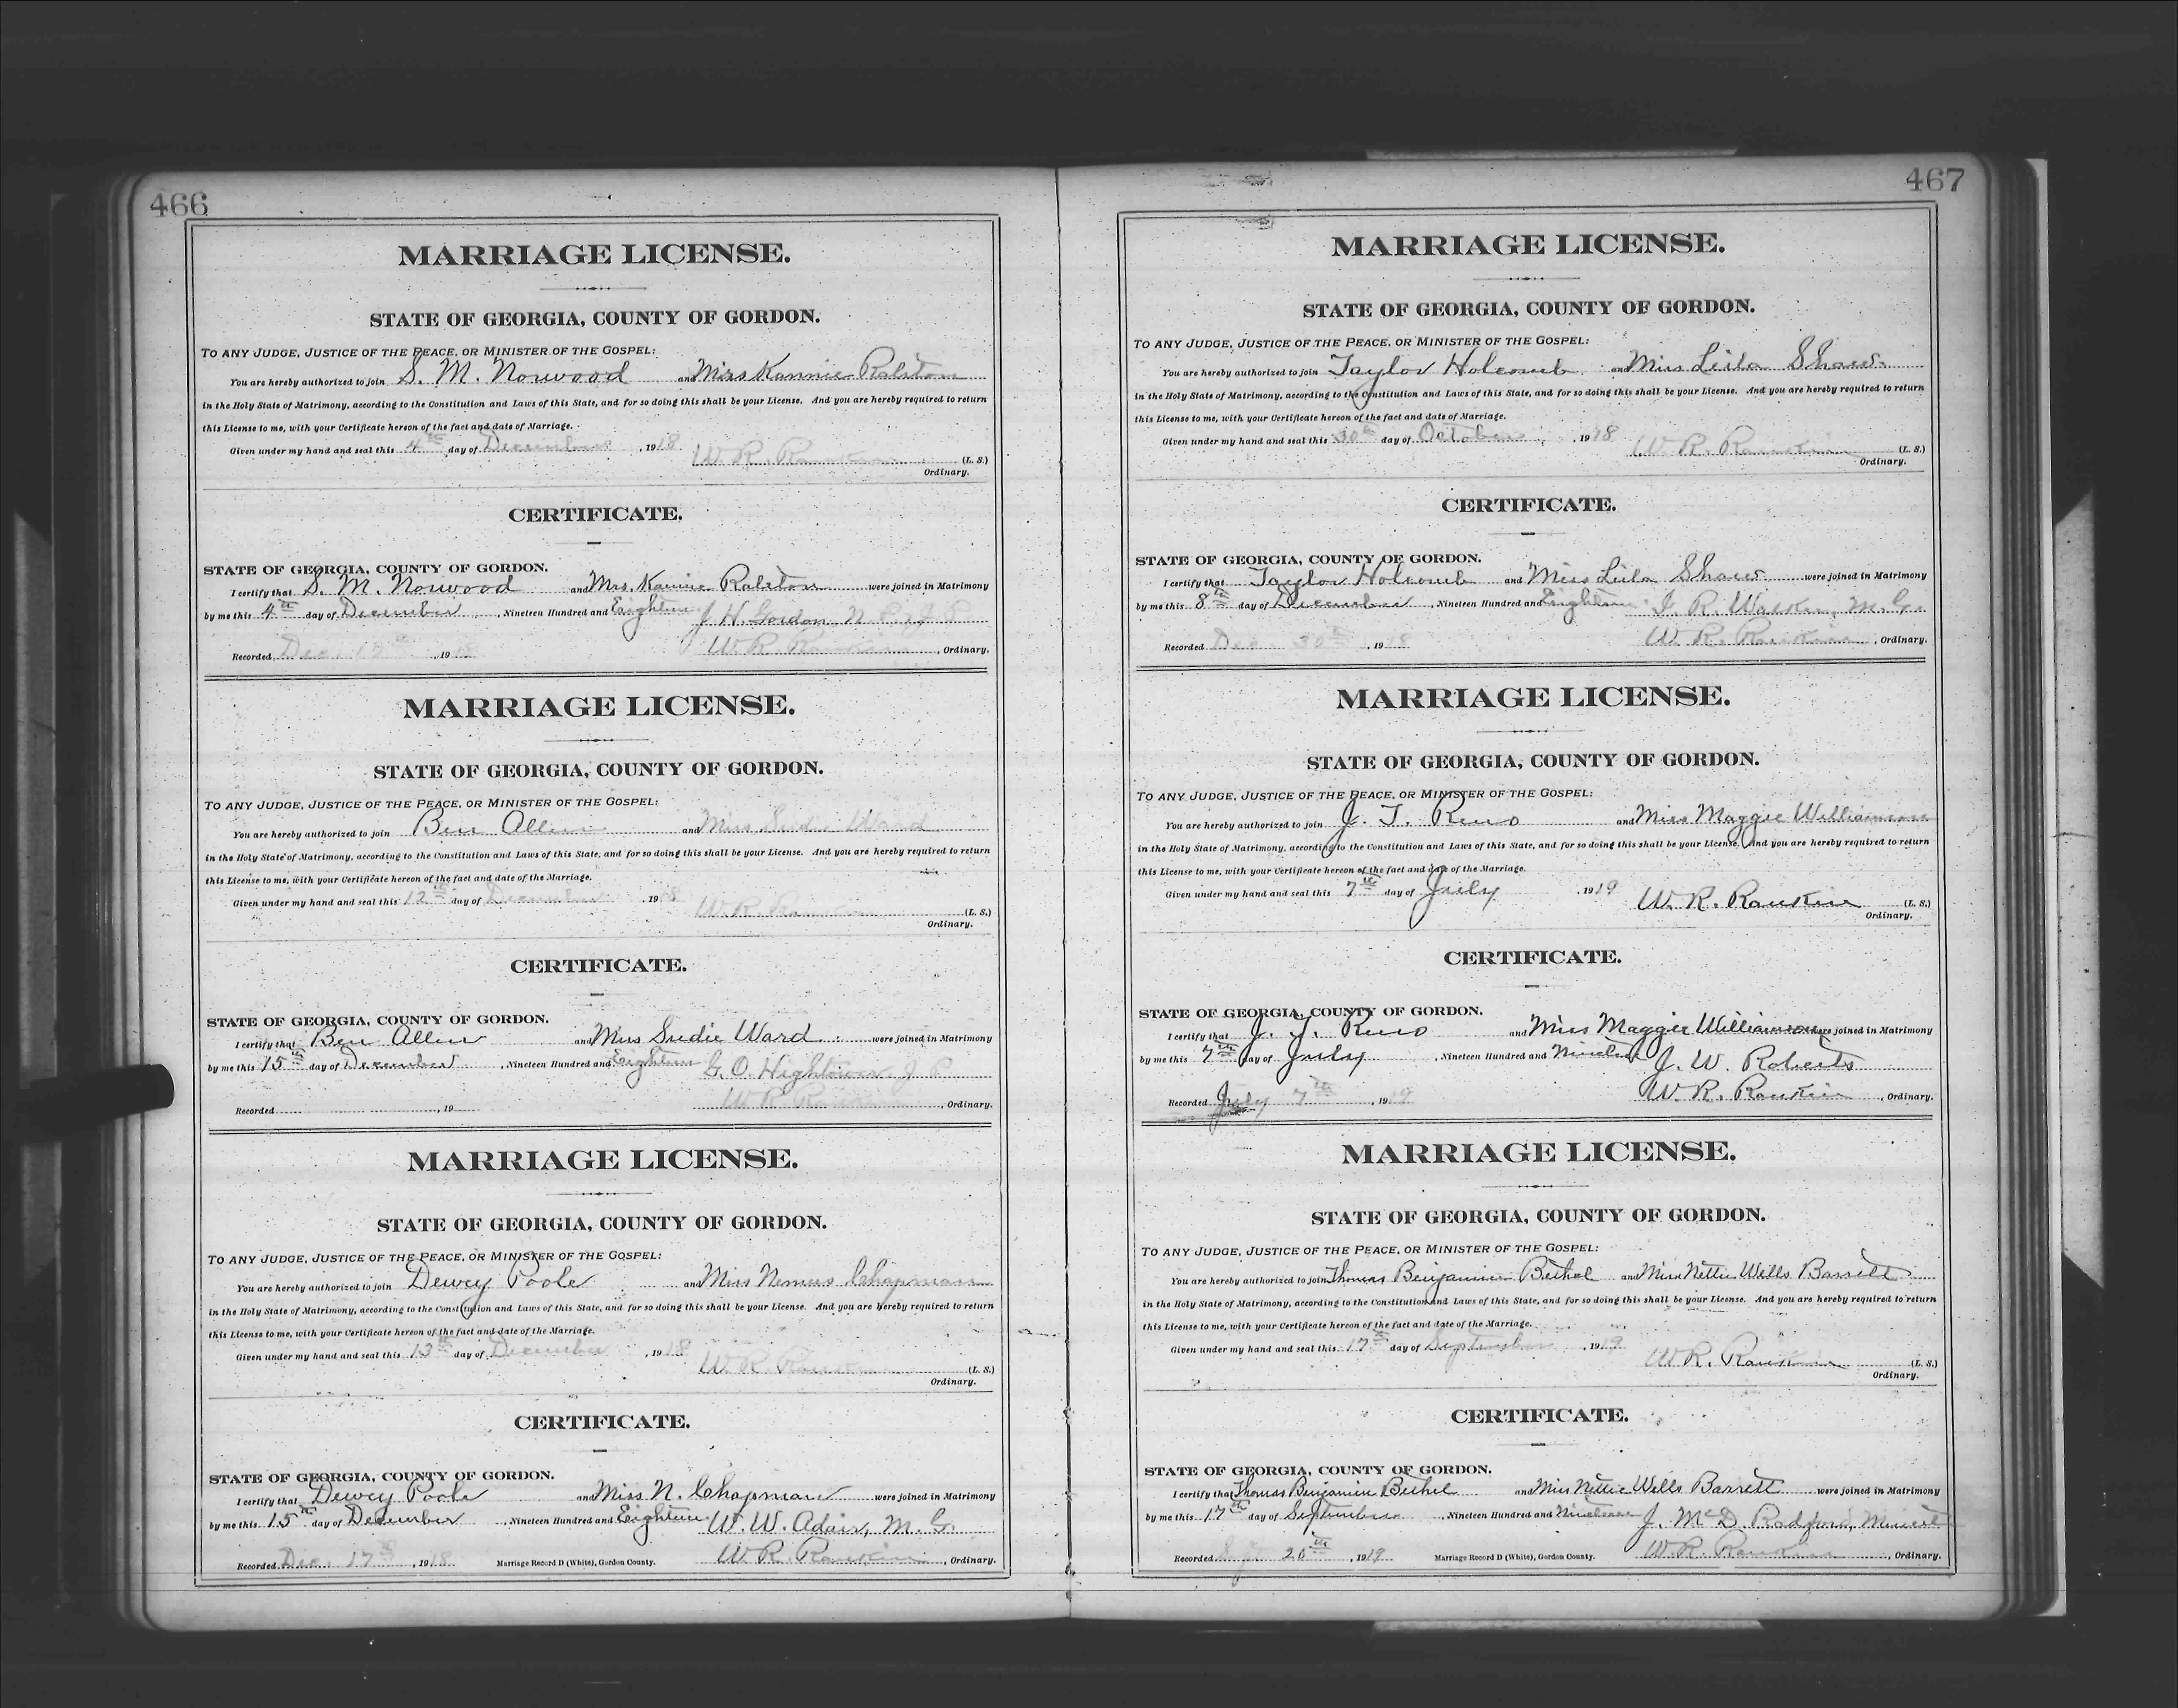 466
MARRIAGE LICENSE.
STATE OF GEORGIA, COUNTY OF GORDON.
TO ANY JUDGE, JUSTICE OF THE PEACE, OR MINISTER OF THE GOSPEL:
You are hereby authorized to join S. M. Norwood and Miss Kannie Ralston
in the Holy State of Matrimony, according to the Constitution and Laws of this State, and for so doing this shall be your License. And you are hereby required to return
this License to me, with your Certificate hereon of the fact and date of Marriage.
Given under my hand and seal this 4th day of December, 1918 W. R. Rankin (L. S.)
Ordinary.
CERTIFICATE.
STATE OF GEORGIA, COUNTY OF GORDON.
I certify that S. M. Norwood and Mrs. Kannie Ralston were joined in Matrimony
by me this 4th day of December, Nineteen Hundred and Eighteen J. H. Gordon N. P.
Recorded Dec. 19 18 W. R. Rankin, Ordinary.
MARRIAGE LICENSE.
STATE OF GEORGIA, COUNTY OF GORDON.
TO ANY JUDGE, JUSTICE OF THE PEACE, OR MINISTER OF THE GOSPEL:
You are hereby authorized to join Ben Allen and Miss Sudie Ward
in the Holy State of Matrimony, according to the Constitution and Laws of this State, and for so doing this shall be your License. And you are hereby required to return
this License to me, with your Certificate hereon of the fact and date of the Marriage.
Given under my hand and seal this 12th day of December, 1918 W. R. Rankin (L. S.)
Ordinary.
CERTIFICATE.
STATE OF GEORGIA, COUNTY OF GORDON.
I certify that Ben Allen and Miss Sudie Ward were joined in Matrimony
by me this 15th day of December, Nineteen Hundred and Eighteen G. O. Hightower J P
Recorded , 19 W. R. Rankin, Ordinary.
MARRIAGE LICENSE.
STATE OF GEORGIA, COUNTY OF GORDON.
TO ANY JUDGE, JUSTICE OF THE PEACE, OR MINISTER OF THE GOSPEL:
You are hereby authorized to join Dewey Poole and Miss Chapman
in the Holy State of Matrimony, according to the Constitution and Laws of this State, and for so doing this shall be your License. And you are hereby required to return
this License to me, with your Certificate hereon of the fact and date of the Marriage.
Given under my hand and seal this 13th day of December, 1918 W. R. Rankin (L. S.)
Ordinary.
CERTIFICATE.
STATE OF GEORGIA, COUNTY OF GORDON.
I certify that Dewey Poole and Miss N. Chapman were joined in Matrimony
by me this 15th day of December, Nineteen Hundred and Eighteen W. W. Adair, M. G.
Recorded Dec. 17th, 1918 Marriage Record D (White), Gordon County. W. R. Rankin, Ordinary.
467
MARRIAGE LICENSE.
STATE OF GEORGIA, COUNTY OF GORDON.
TO ANY JUDGE, JUSTICE OF THE PEACE, OR MINISTER OF THE GOSPEL:
You are hereby authorized to join Taylor Holcomb and Miss Leila Shaw
in the Holy State of Matrimony, according to the Constitution and Laws of this State, and for so doing this shall be your License. And you are hereby required to return
this License to me, with your Certificate hereon of the fact and date of Marriage.
Given under my hand and seal this 30th day of October, 1918 W. R. Rankin (L. S.)
Ordinary.
CERTIFICATE.
STATE OF GEORGIA, COUNTY OF GORDON.
I certify that Taylor Holcomb and Miss Leila Shaw were joined in Matrimony
by me this 8th day of December, Nineteen Hundred and Eighteen J. R. Walker, M. G.
Recorded Dec 30th, 1918 W. R. Rankin, Ordinary.
MARRIAGE LICENSE.
STATE OF GEORGIA, COUNTY OF GORDON.
TO ANY JUDGE, JUSTICE OF THE PEACE, OR MINISTER OF THE GOSPEL:
You are hereby authorized to join J. T. Reno and Miss Maggie Williamson
in the Holy State of Matrimony, according to the Constitution and Laws of this State, and for so doing this shall be your License. And you are hereby required to return
this License to me, with your Certificate hereon of the fact and date of the Marriage.
Given under my hand and seal this 7th day of July, 1919 W. R. Rankin (L. S.)
Ordinary.
CERTIFICATE.
STATE OF GEORGIA, COUNTY OF GORDON.
I certify that J. T. Reno and Miss Maggie Williamson were joined in Matrimony
by me this 7th day of July, Nineteen Hundred and Nineteen J. W. Roberts
Recorded July 7th, 1919 W. R. Rankin, Ordinary.
MARRIAGE LICENSE.
STATE OF GEORGIA, COUNTY OF GORDON.
TO ANY JUDGE, JUSTICE OF THE PEACE, OR MINISTER OF THE GOSPEL:
You are hereby authorized to join Thomas Benjamin Bethel and Miss Nettie Wells Barrett
in the Holy State of Matrimony, according to the Constitution and Laws of this State, and for so doing this shall be your License. And you are hereby required to return
this License to me, with your Certificate hereon of the fact and date of the Marriage.
Given under my hand and seal this 17th day of September, 1919 W. R. Rankin (L. S.)
Ordinary.
CERTIFICATE.
STATE OF GEORGIA, COUNTY OF GORDON.
I certify that Thomas Benjamin Bethel and Miss Nettie Wells Barrett were joined in Matrimony
by me this 17th day of September, Nineteen Hundred and Nineteen J. McD. Radford,
Recorded Sept 20th, 1919 Marriage Record D (White), Gordon County. W. R. Rankin, Ordinary.